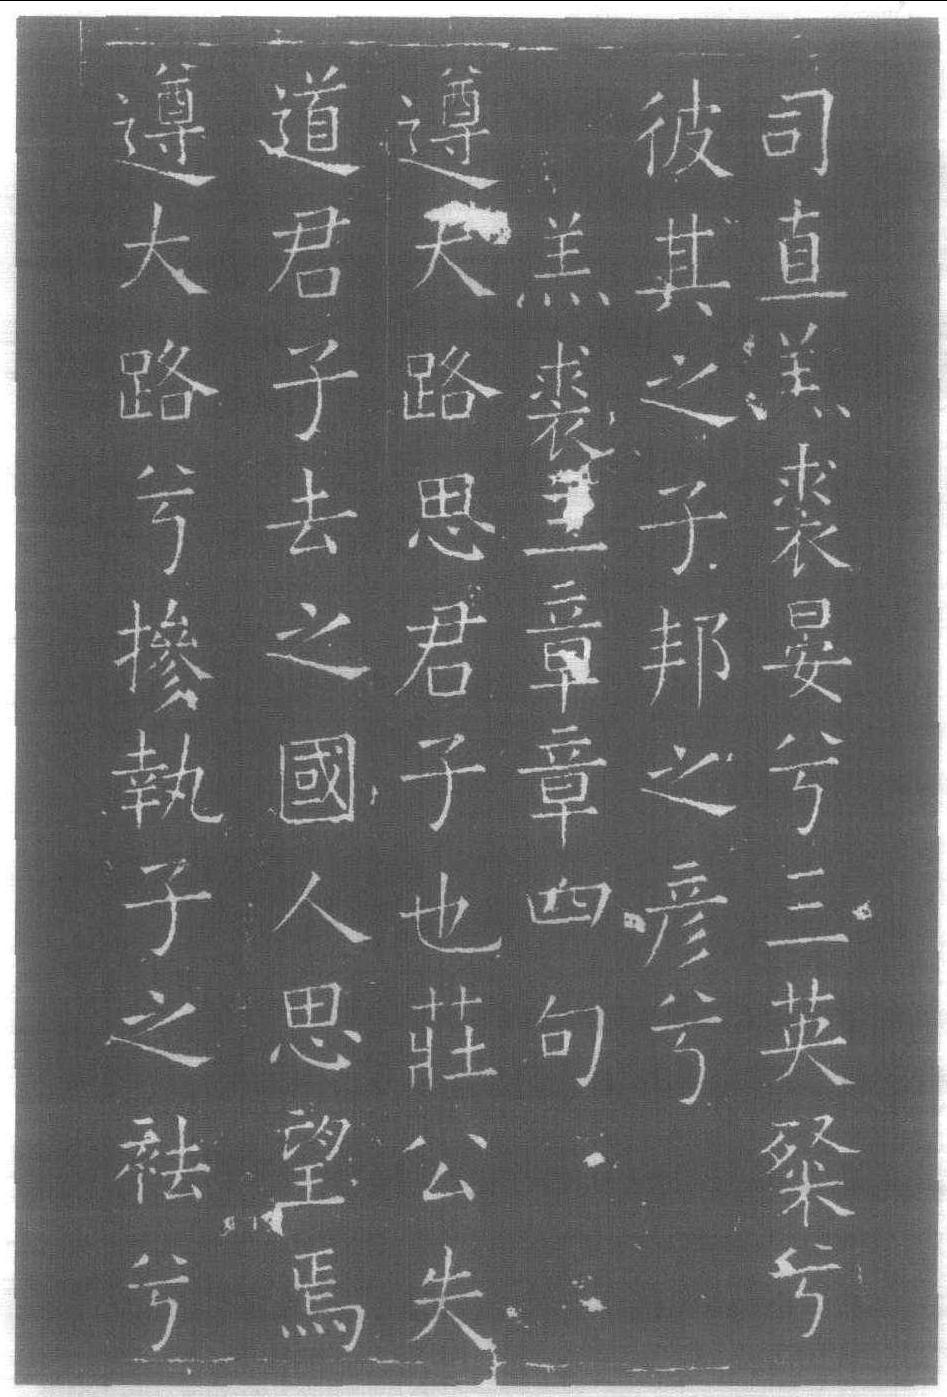 司直羔裘晏兮三英粲兮
彼其之子邦之彦兮
羔裘三章章四句
遵大路思君子也莊公失
道君子去之國人思望焉
遵大路兮摻執子之袪兮